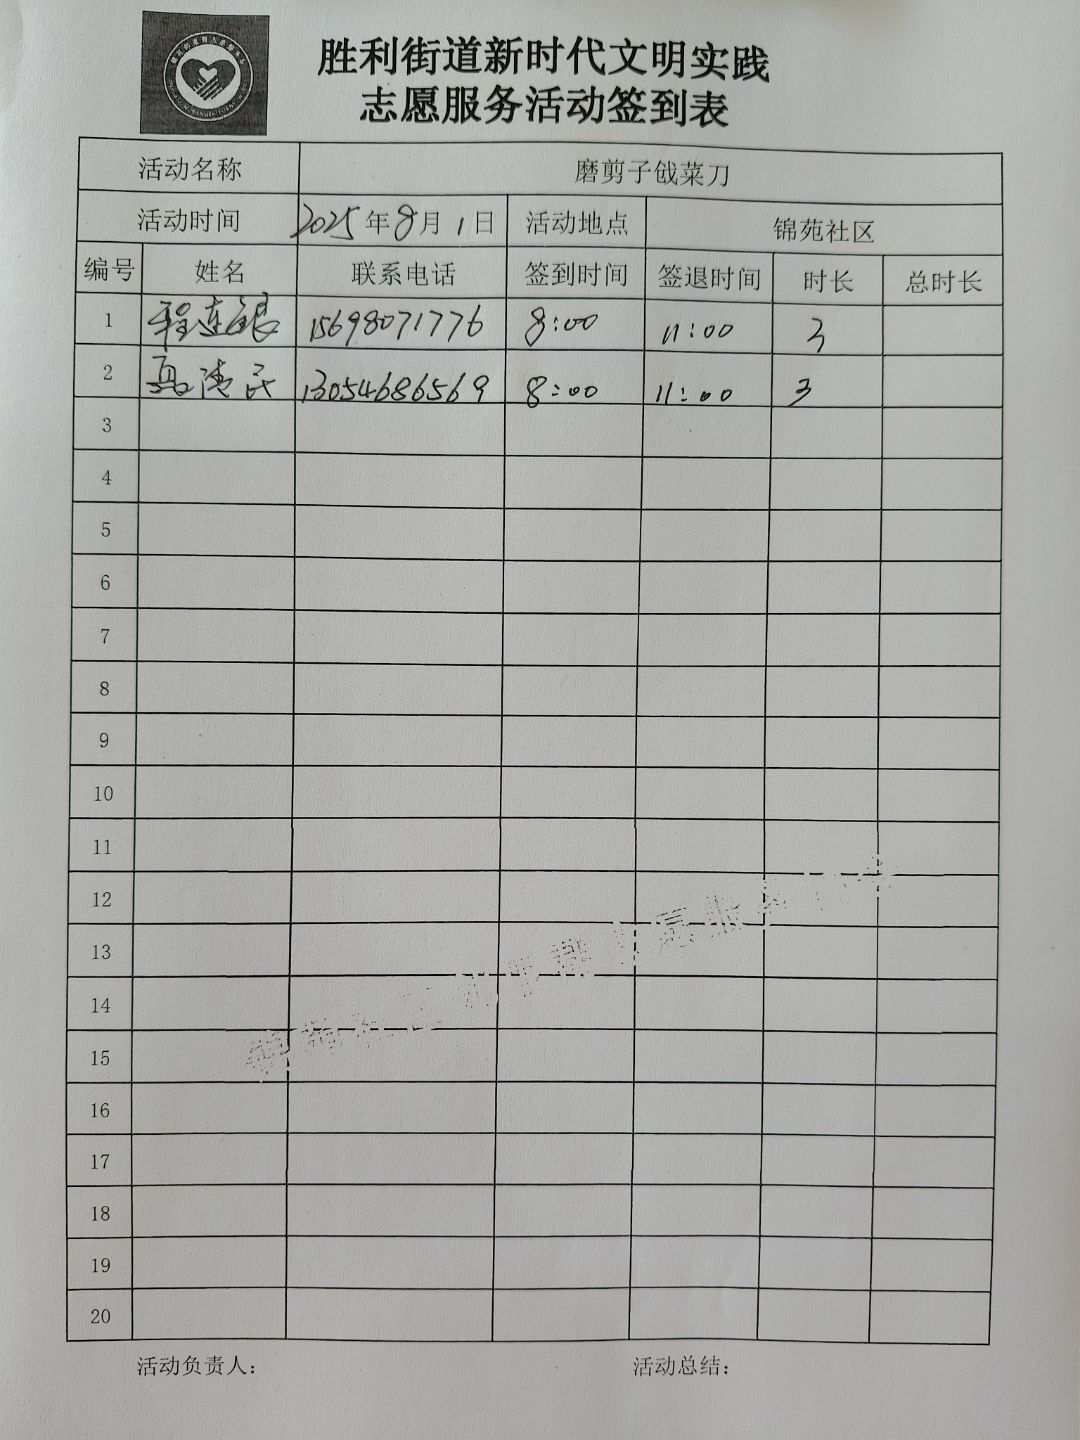 胜利街道新时代文明实践
志愿服务活动签到表
活动名称 磨剪子戗菜刀
活动时间 2025年8月1日 活动地点 锦苑社区
编号 姓名 联系电话 签到时间 签退时间 时长 总时长
1 程连银 15698071776 8:00 11:00 3
2 13054686569 8:00 11:00 3
3
4
5
6
7
8
9
10
11
12
13
14
15
16
17
18
19
20
活动负责人: 活动总结: